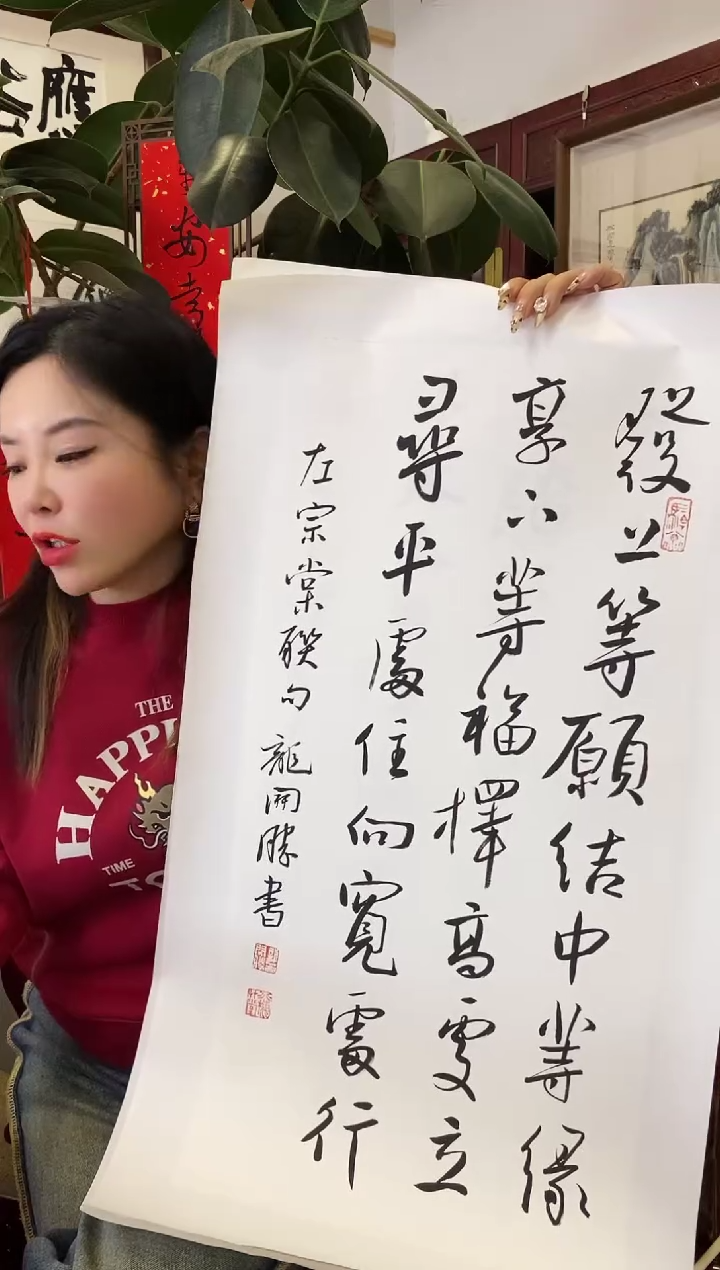 發上等願結中等緣
享下等福擇高處立
尋平處住向寬處行
左宗棠聯句 龍開勝書
應
安
THE
HAPPI
TIME
TO